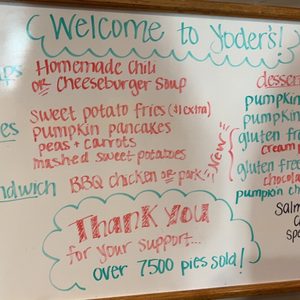 Welcome to Yoder's!
Homemade Chili
OR Cheeseburger Soup
sweet potato fries ($1 extra)
pumpkin pancakes
peas + carrots
mashed sweet potatoes
BBQ chicken OR pork
NEW
Thank you
for your support...
over 7500 pies sold!
pumpkin
pumpki
gluten fre
gluten fre
pumpkin ch